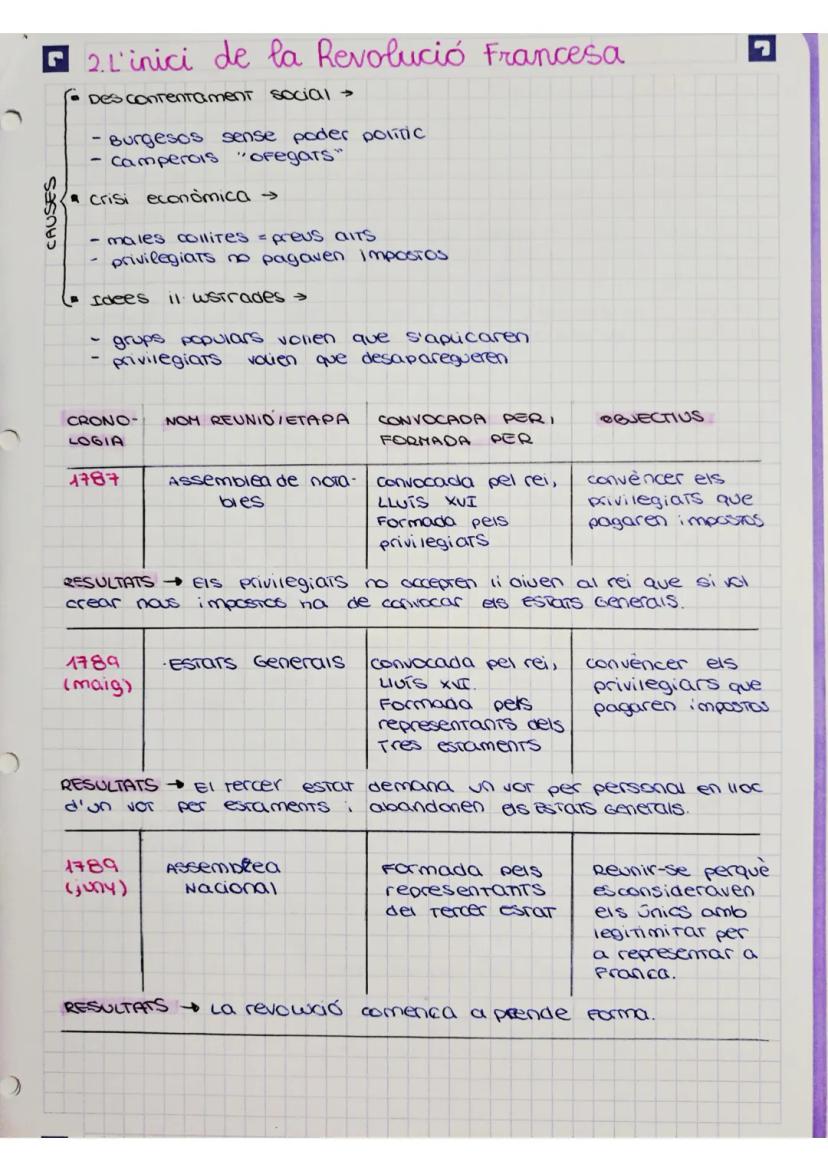 2. L'inici de la Revolució Francesa
CAUSES
Descontentament social →
- Burgesos sense poder polític
- camperols "ofegats"
crisi econòmica →
- males collites = preus alts
- privilegiats no pagaven impostos
Idees il·lustrades →
- grups populars volien que s'aplicaren
- privilegiats volien que desaparegueren
CRONO-
LOGIA
NOM REUNIÓ/ETAPA
CONVOCADA PER/
FORMADA PER
OBJECTIUS
1787
Assemblea de nota-
bles
convocada pel rei,
LLUÍS XVI
Formada pels
privilegiats
convèncer els
privilegiats que
pagaren impostos
RESULTATS → Els privilegiats no accepten i diuen al rei que si vol
crear nous impostos ha de convocar els Estats Generals.
1789
(maig)
·Estats Generals
convocada pel rei,
LLUÍS XVI.
Formada pels
representants dels
Tres estaments
convèncer els
privilegiats que
pagaren impostos
RESULTATS → El tercer estat demana un vot per personal en lloc
d'un vot per estaments i abandonen els Estats Generals.
1789
(juny)
Assemblea
Nacional
Formada pels
representants
del Tercer estat
Reunir-se perquè
es consideraven
els únics amb
legitimitat per
a representar a
Franca.
RESULTATS → La revolució comenca a prende forma.